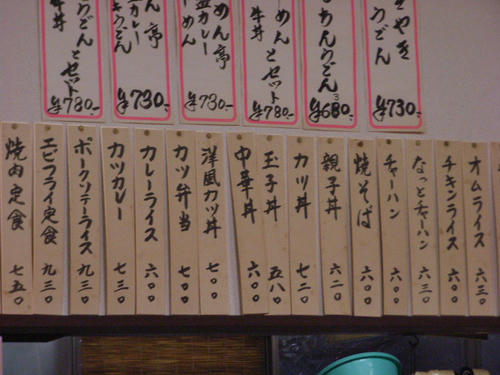 きやき
うどん
¥730.-
ちんうどん
¥680.-
めん
牛丼 とセット
¥780.-
めん亭
カレー
めん
¥730.-
ん亭
カレー
うどん
¥730.-
どんとセット
牛丼
¥780.-
オムライス 六三〇
チキンライス 六〇〇
なっとチャーハン 六三〇
チャーハン 六〇〇
焼そば 六〇〇
親子丼 六二〇
カツ丼 七二〇
玉子丼 五八〇
中華丼 六〇〇
洋風カツ丼 七〇〇
カツ弁当 七〇〇
カレーライス 六〇〇
カツカレー 七三〇
ポークソテーライス 九三〇
エビフライ定食 九三〇
焼肉定食 七五〇